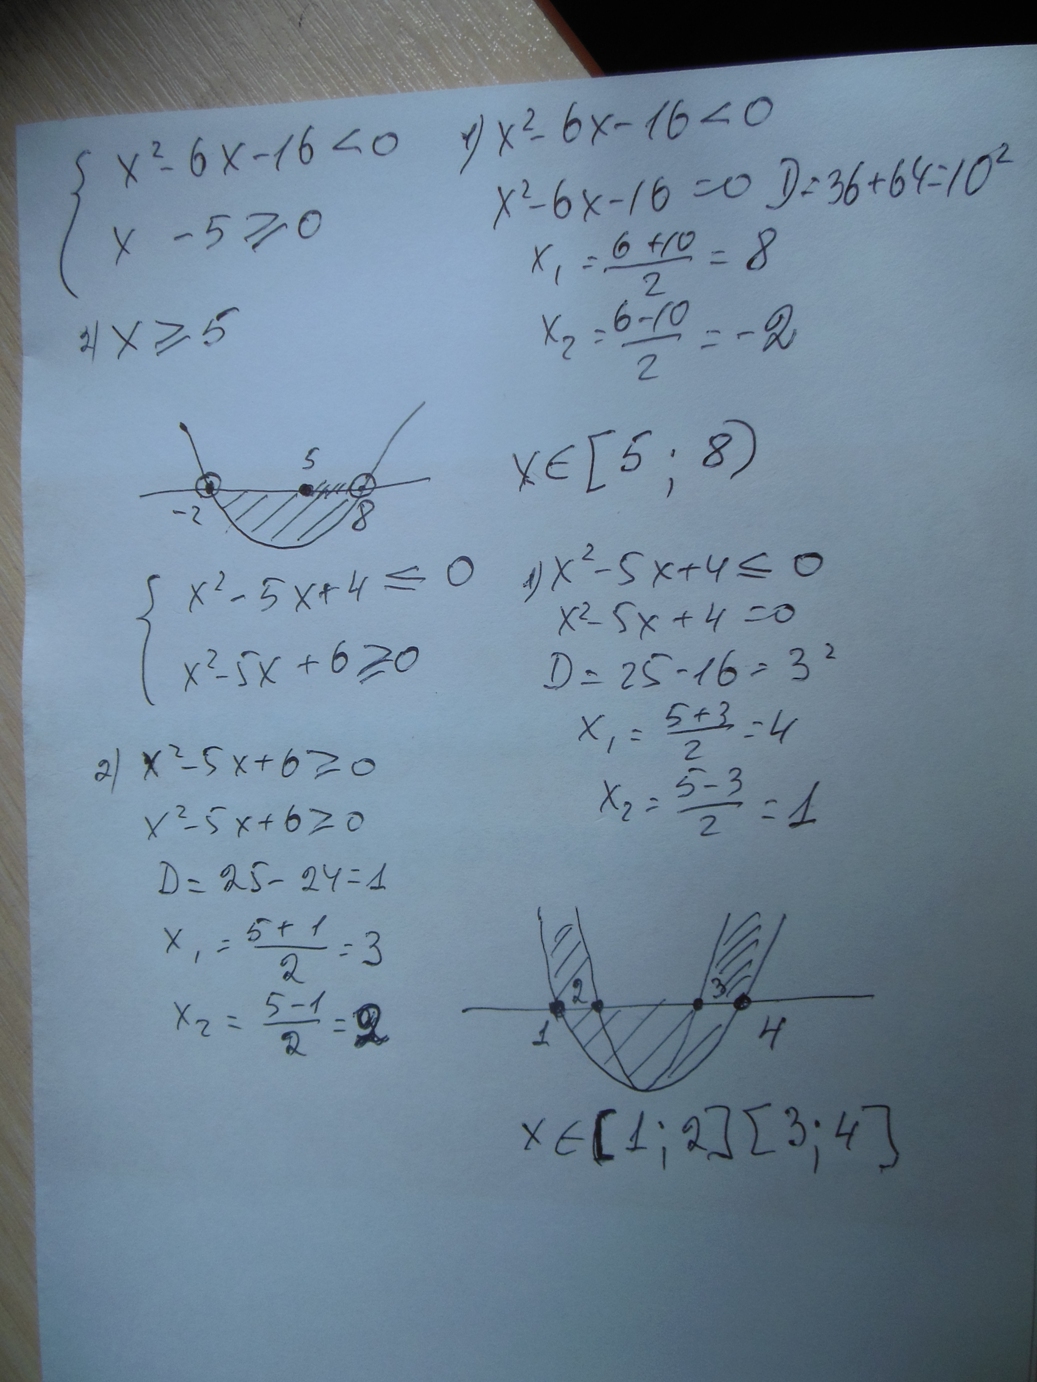 { x² - 6x - 16 < 0
x - 5 ⩾ 0
1) x² - 6x - 16 < 0
x² - 6x - 16 = 0 D = 36 + 64 = 10²
x₁ = (6 + 10)/2 = 8
x₂ = (6 - 10)/2 = -2
2) x ⩾ 5
-2 5 8
x ∈ [5 ; 8)
{ x² - 5x + 4 ≤ 0
x² - 5x + 6 ⩾ 0
1) x² - 5x + 4 ≤ 0
x² - 5x + 4 = 0
D = 25 - 16 = 3²
x₁ = (5 + 3)/2 = 4
x₂ = (5 - 3)/2 = 1
2) x² - 5x + 6 ⩾ 0
x² - 5x + 6 ⩾ 0
D = 25 - 24 = 1
x₁ = (5 + 1)/2 = 3
x₂ = (5 - 1)/2 = 2
1 2 3 4
x ∈ [1 ; 2] [3 ; 4]